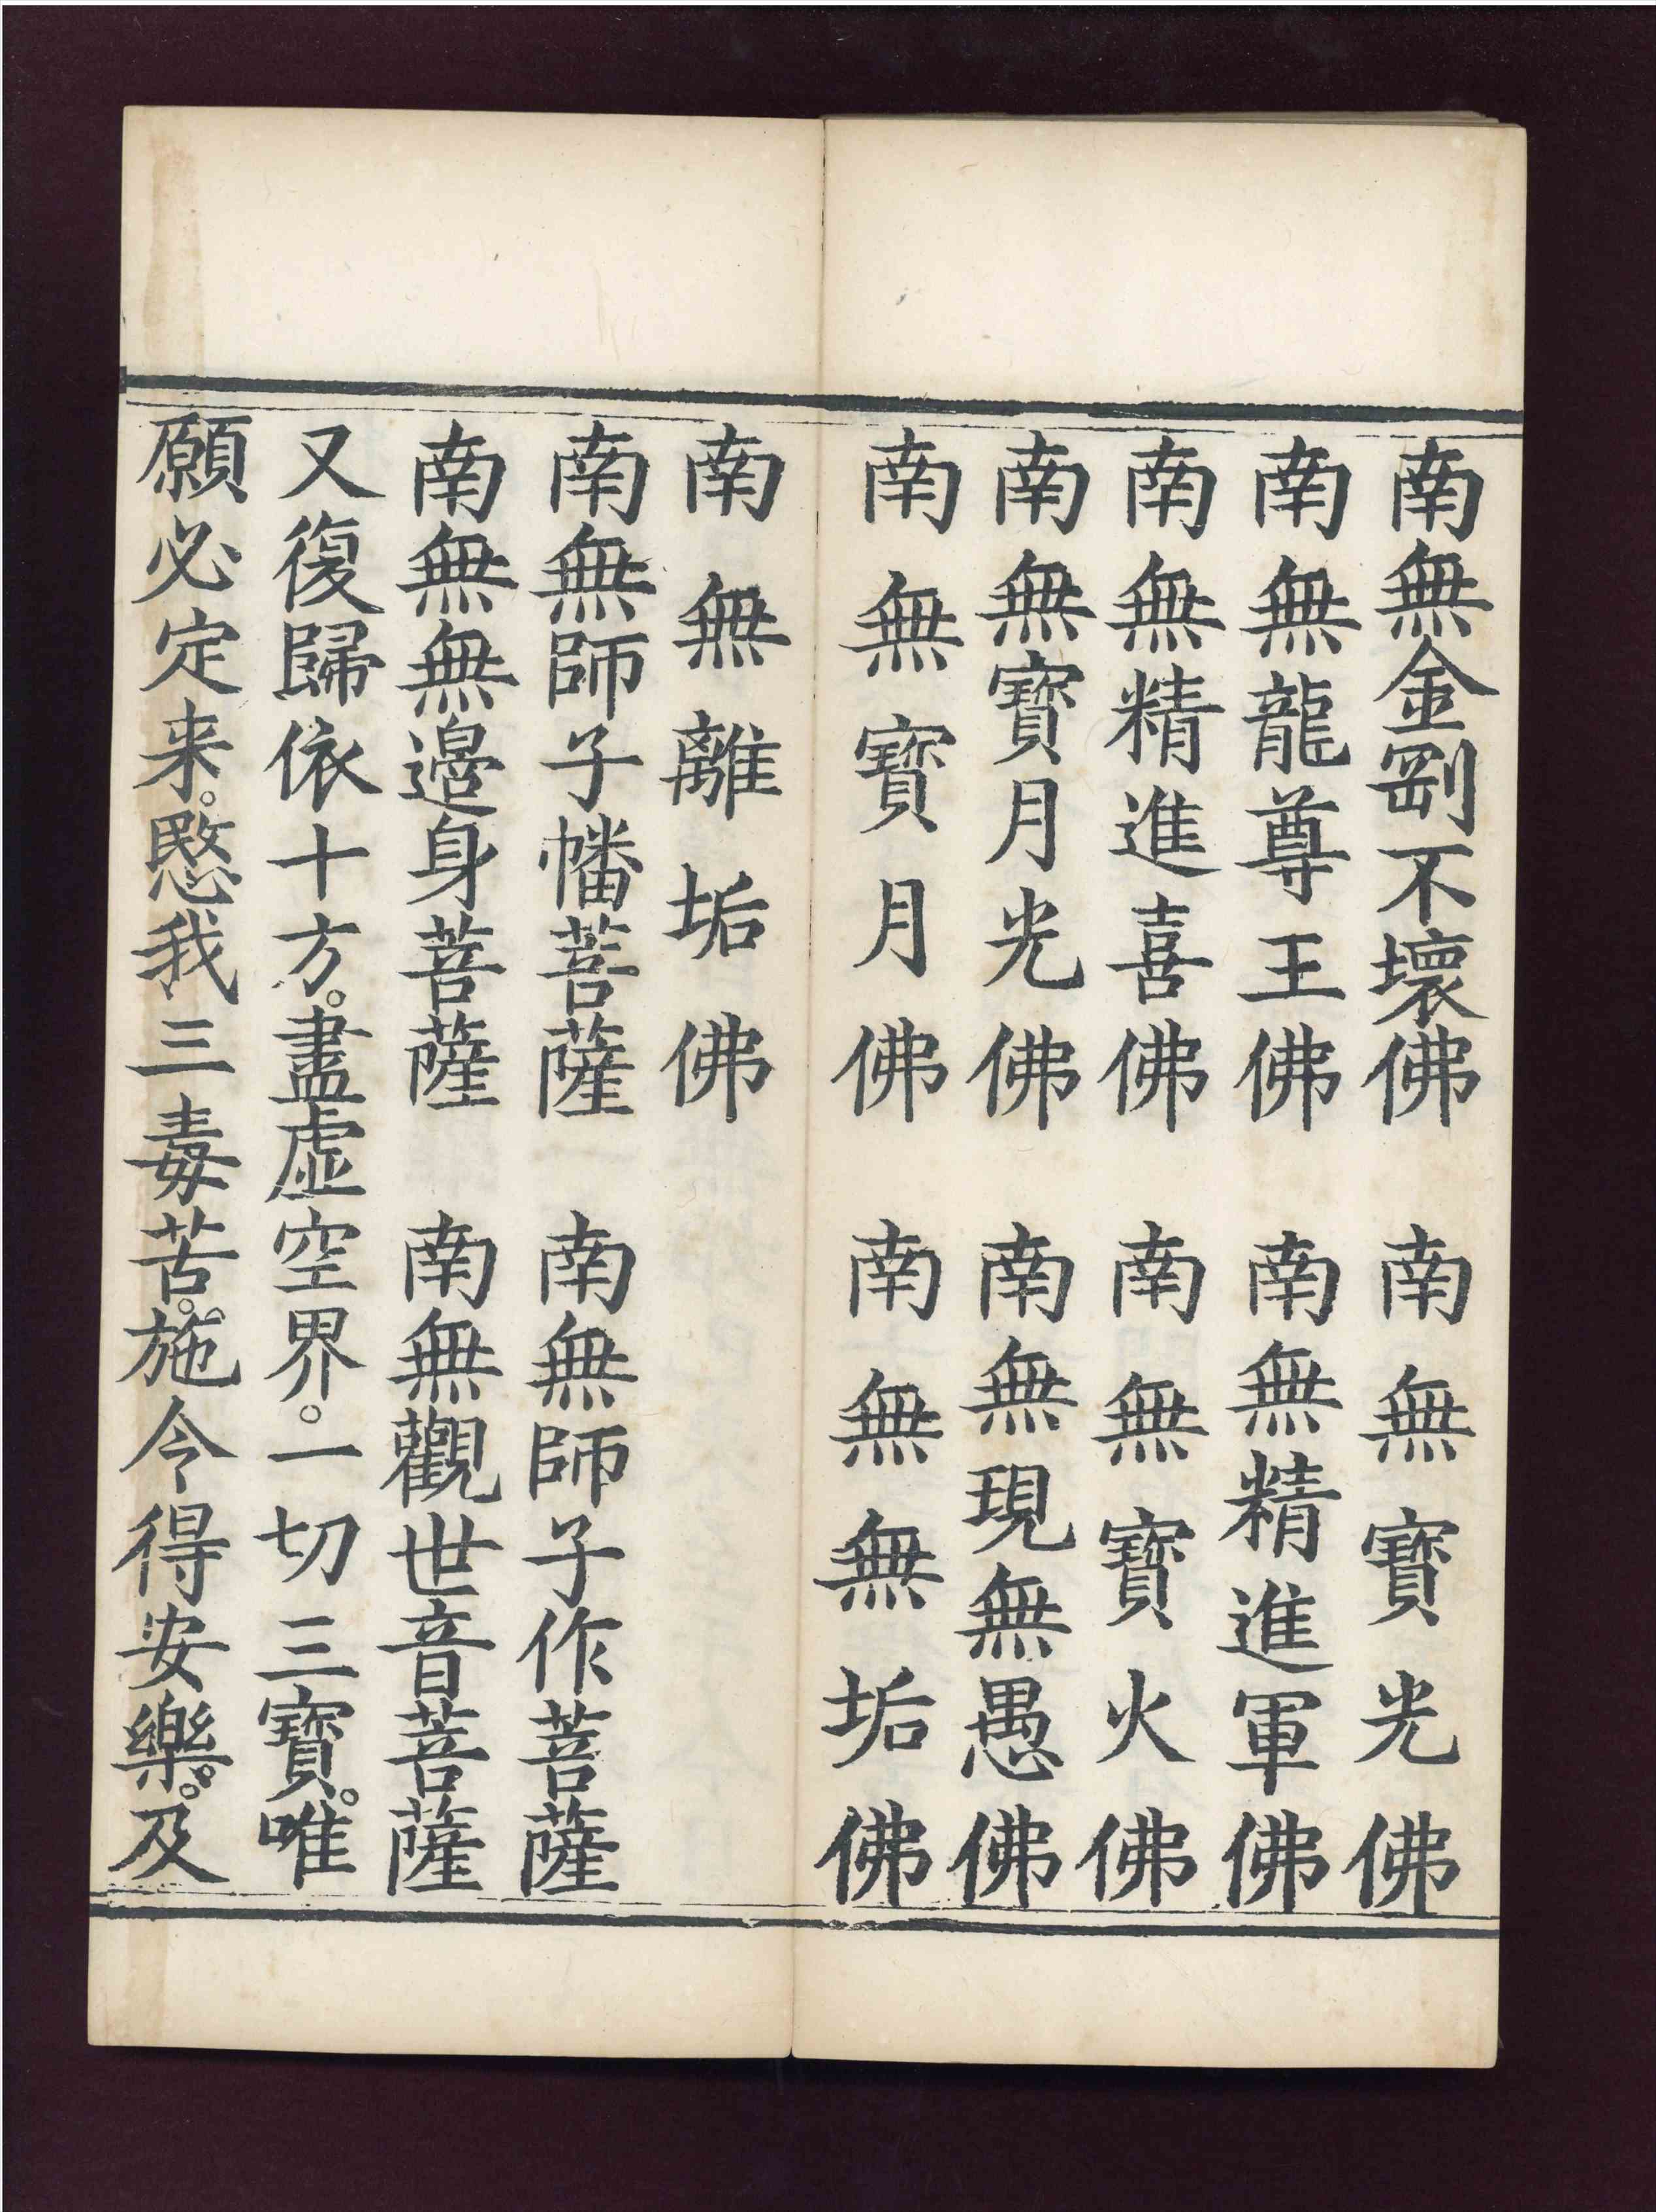 南無金剛不壞佛　南無寶光佛
南無龍尊王佛　南無精進軍佛
南無精進喜佛　南無寶火佛
南無寶月光佛　南無現無愚佛
南無寶月佛　南無無垢佛
南無離垢佛
南無師子幡菩薩　南無師子作菩薩
南無無邊身菩薩　南無觀世音菩薩
又復歸依十方。盡虛空界。一切三寶。唯
願必定来。愍我三毒苦。施令得安樂。及